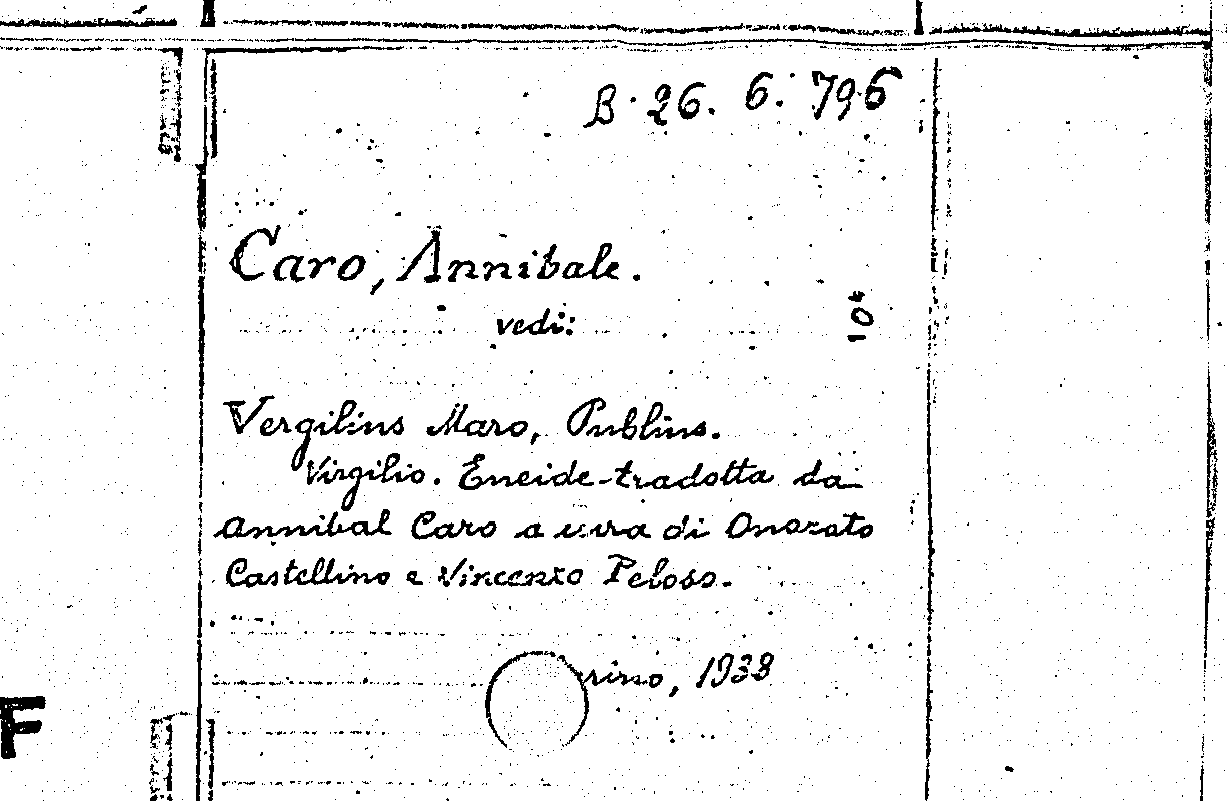 B. 26. 6. 796
Caro, Annibale.
vedi:
10*
Vergilius Maro, Publius.
Virgilio. Eneide-tradotta da
Annibal Caro a cura di Onorato
Castellino e Vincenzo Peloso.
rino, 1938
F